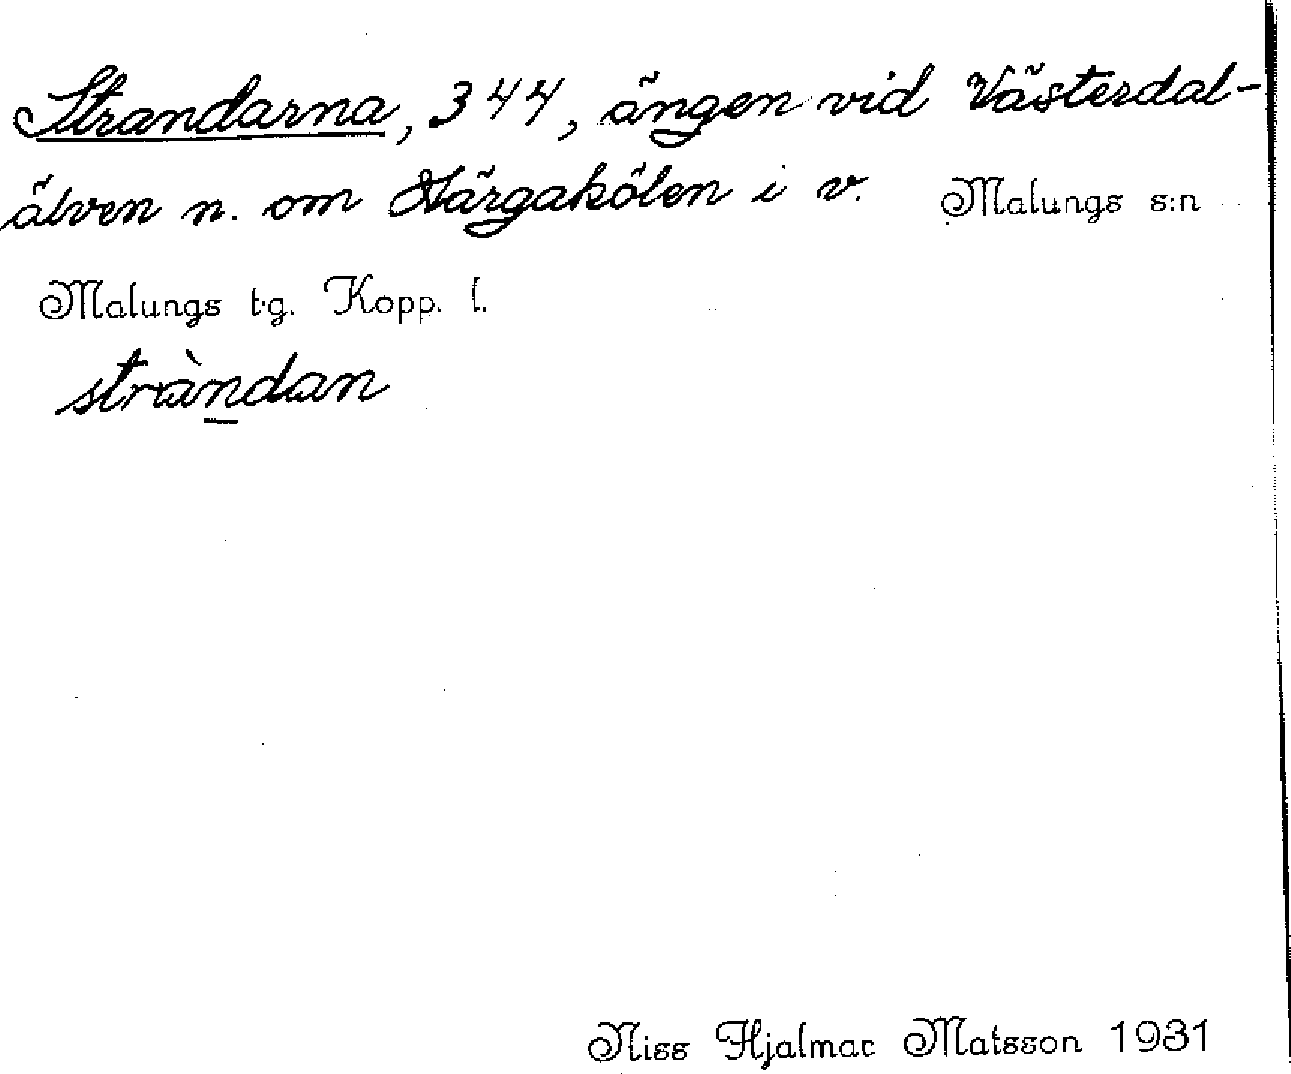 Strandarna, 344, ängen vid Västerdal-
älven n. om Härgakölen i v. Malungs s:n
Malungs t.g. Kopp. l.
stràndan
Niss Hjalmar Matsson 1931